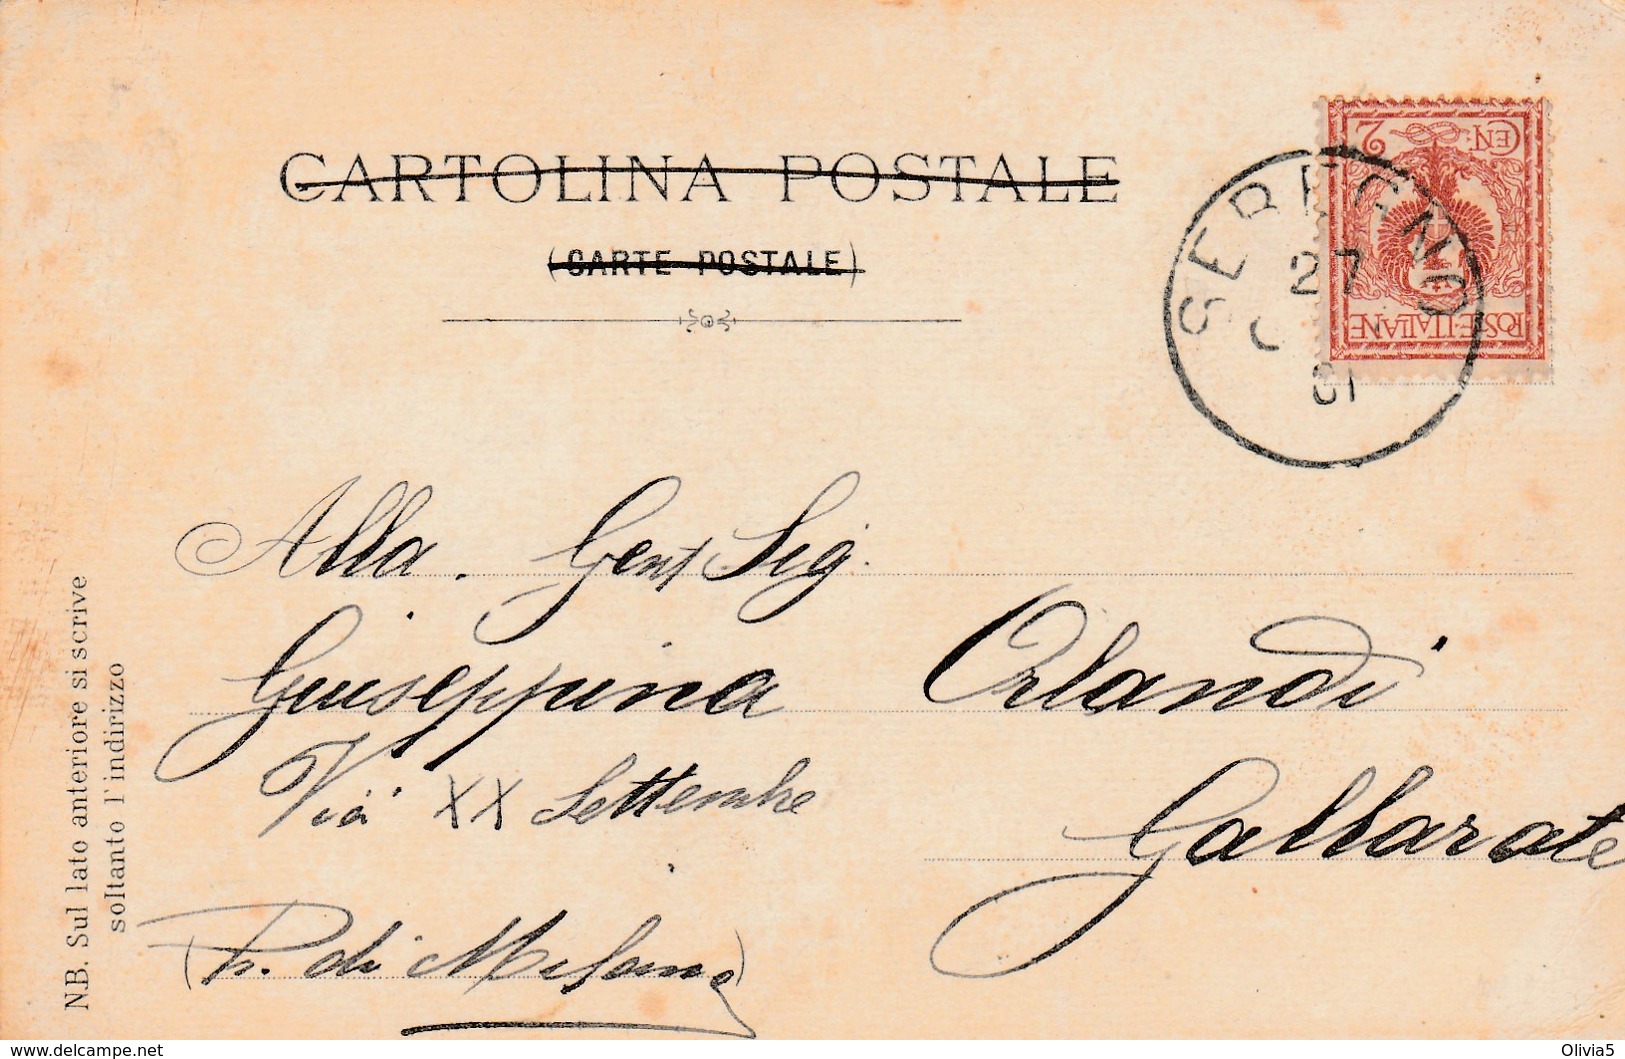 CARTOLINA POSTALE
(CARTE POSTALE)
CEN. 2
POSTE·ITALIANE
SEREGNO
27
01
Alla Gent Sig.
Giuseppina Orlandi
Via XX Settembre
Gallarate
(P. di Milano)
N.B. Sul lato anteriore si scrive
soltanto l'indirizzo
delcampe.net
Olivia5